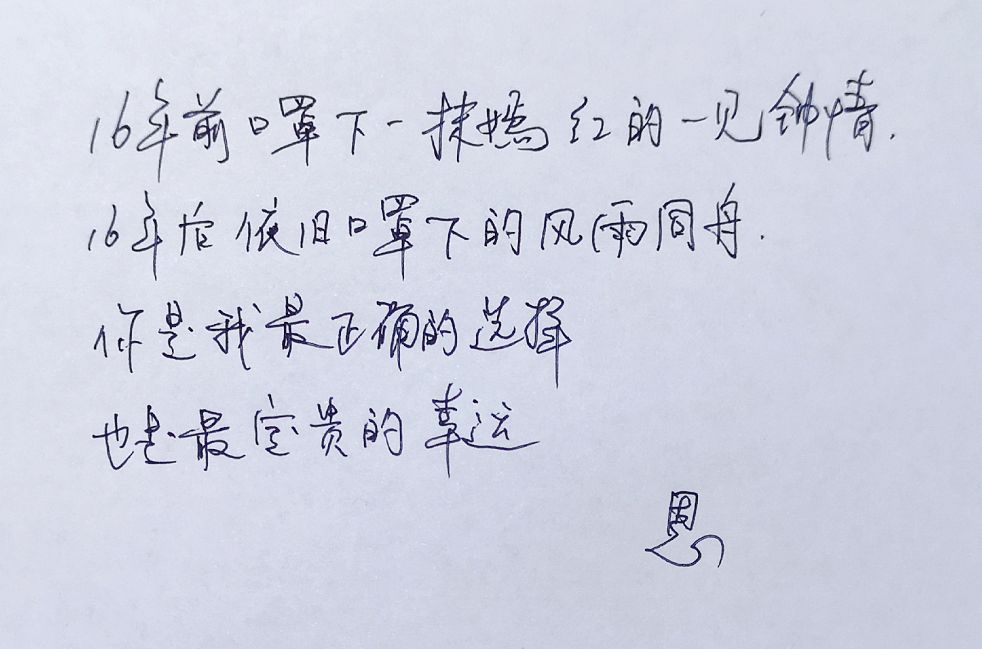 16年前口罩下一抹嫣红的一见钟情.
16年后依旧口罩下的风雨同舟.
你是我最正确的选择
也是最宝贵的幸运
恩